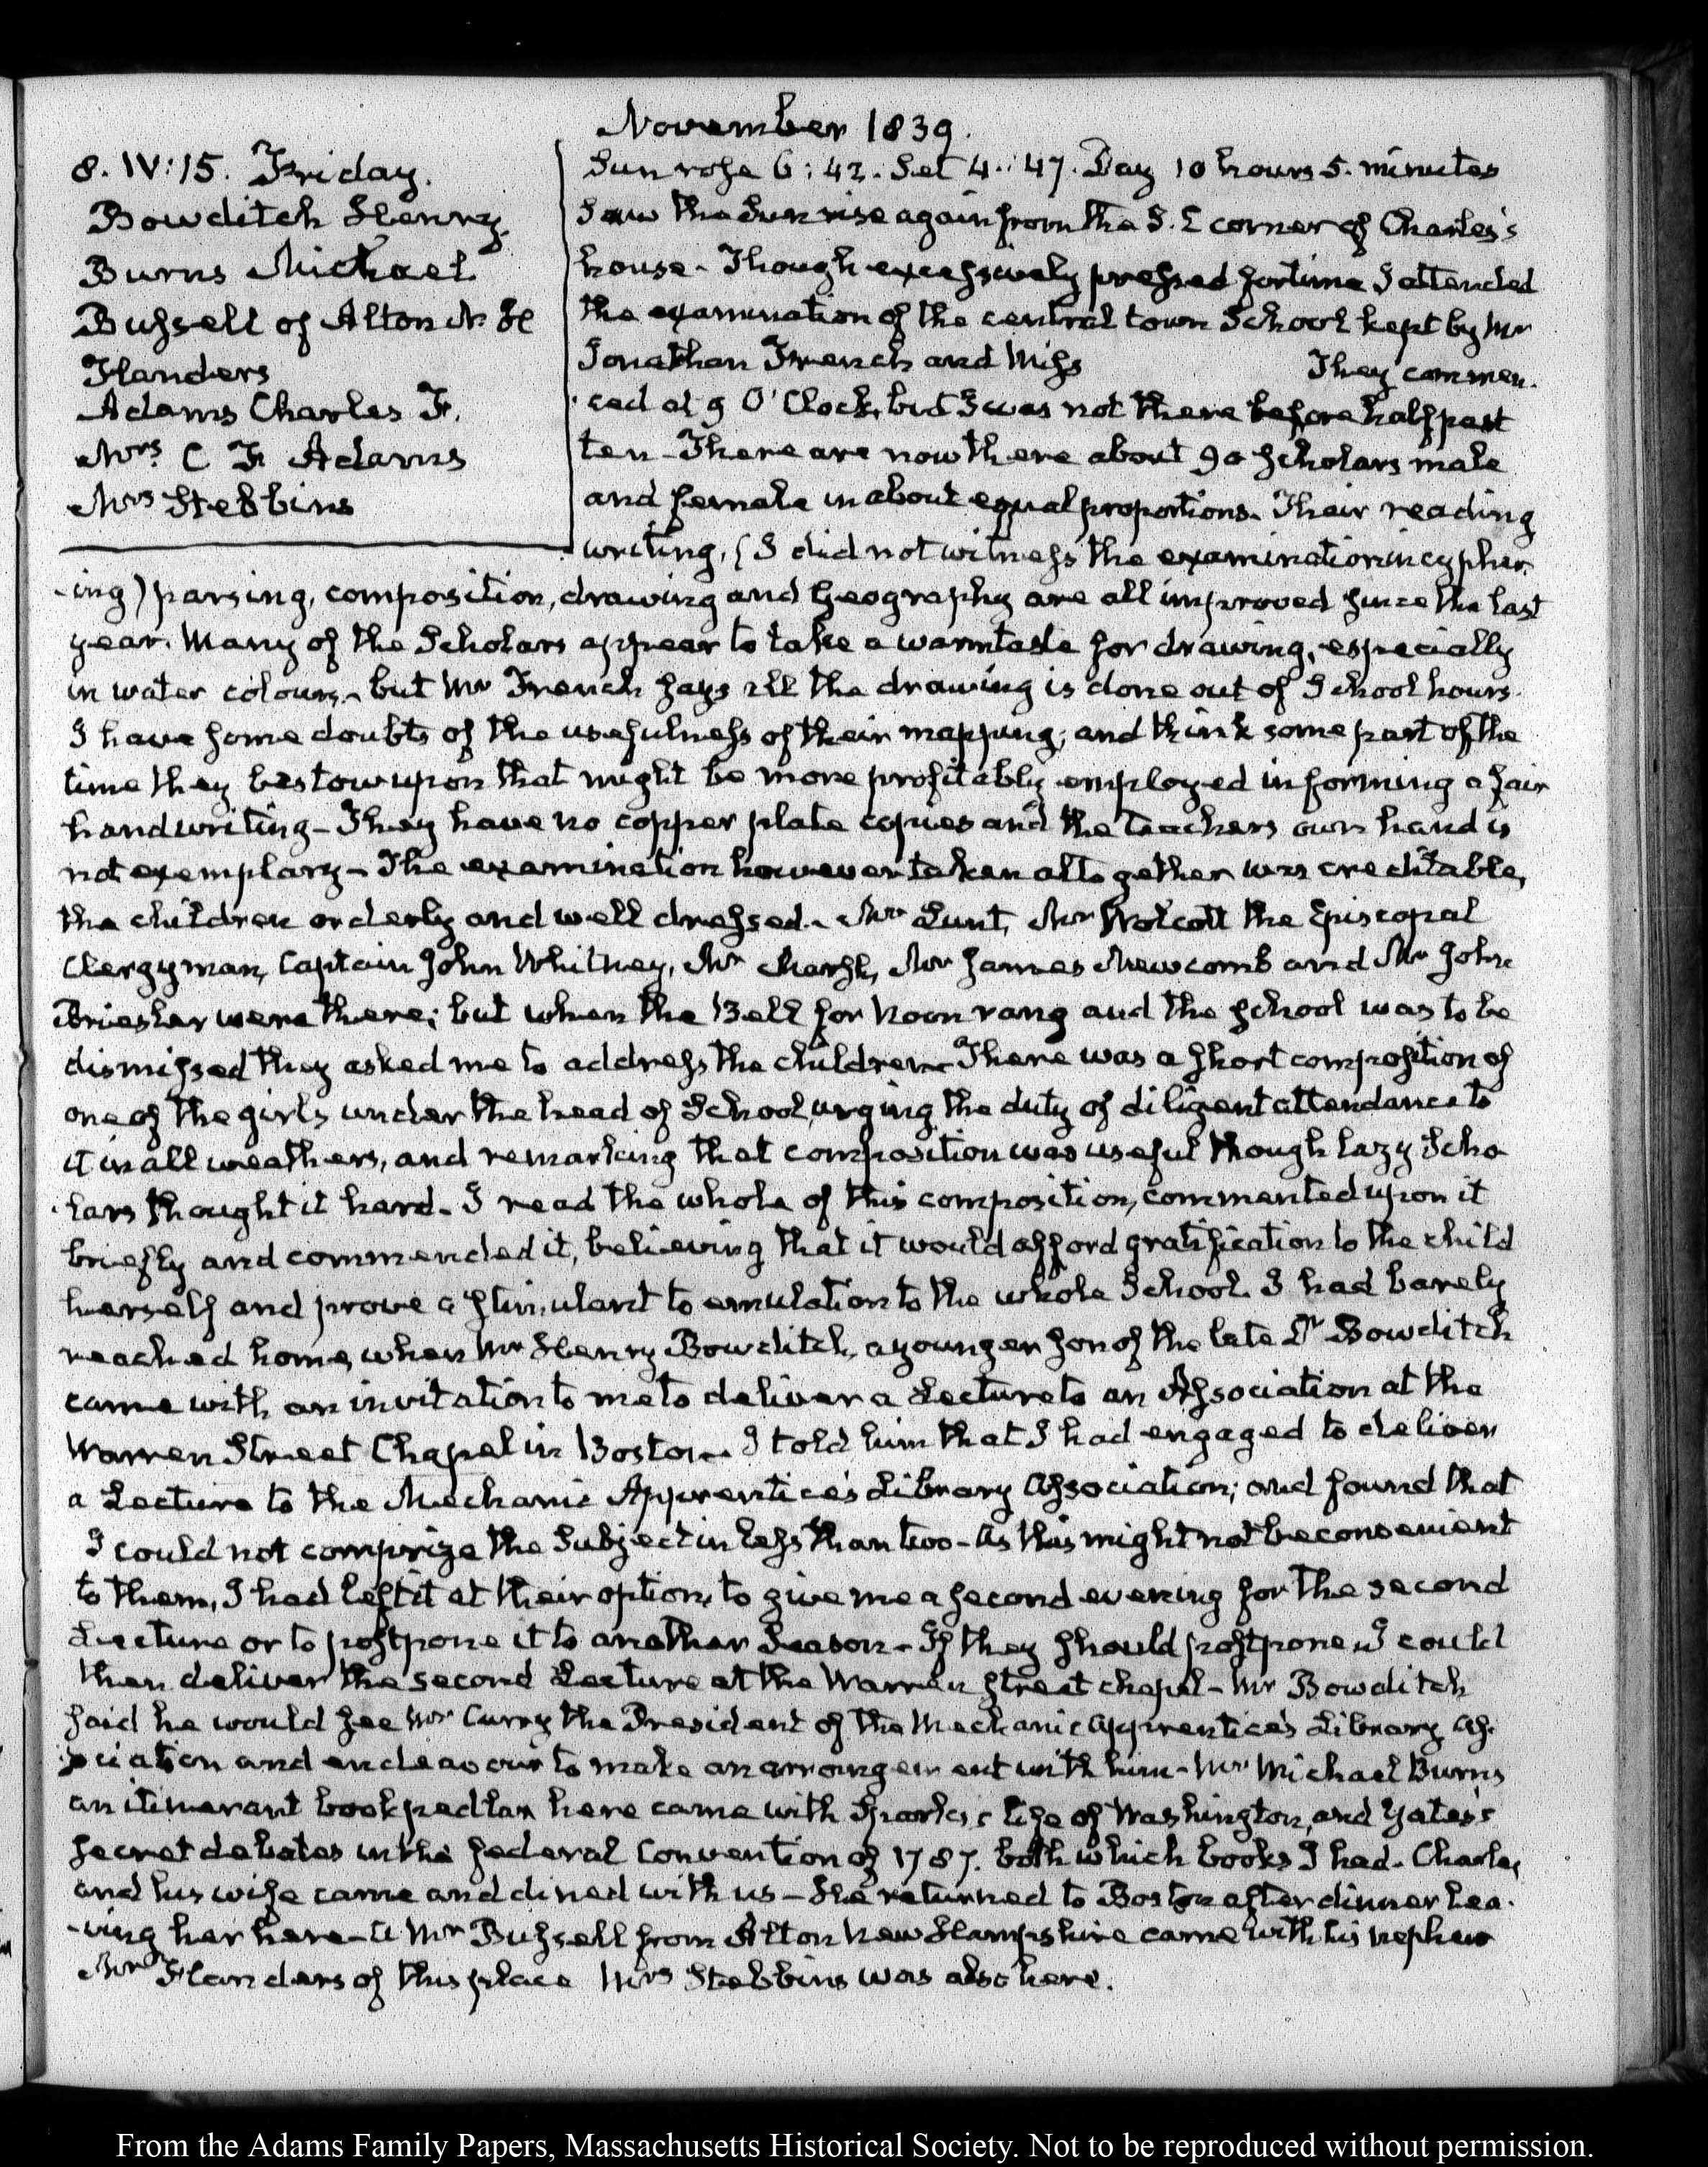 November 1839.
8. IV:15. Friday.
Bowditch Henry.
Burns Michael
Bussell of Alton N. H
Flanders
Adams Charles F.
Mrs. C F. Adams
Mrs Stebbins
Sun rose 6:42. Set 4:47. Day 10 hours 5. minutes
Saw the Sun rise again from the S. E corner of Charles's
house. Though excessively pressed for time I attended
the examination of the central town School kept by Mr
Jonathan French and Miss They commen-
-ced at 9 O'Clock, but I was not there before half past
ten. There are now there about 90 scholars male
and female in about equal proportions. Their reading
writing, (I did not witness the examination in cypher
-ing) parsing, composition, drawing and Geography are all improved since the last
year. Many of the Scholars appear to take a warm taste for drawing, especially
in water colours,- but Mr French says all the drawing is done out of School hours.
I have some doubts of the usefulness of their mapping; and think some part of the
time they bestow upon that might be more profitably employed in forming a fair
handwriting- They have no copper plate copies and the teachers own hand is
not exemplary- The examination however taken altogether was creditable,
the children orderly and well dressed.- Mr Lunt, Mr Wolcott the Episcopal
Clergyman, Captain John Whitney, Mr Marsh, Mr James Newcomb and Mr John
Briesler were there; but when the Bell for Noon rang and the school was to be
dismissed they asked me to address the children- There was a short composition of
one of the girls under the head of School, urging the duty of diligent attendance to
it in all weathers, and remarking that composition was useful though lazy Scho-
-lars thought it hard. I read the whole of this composition, commented upon it
briefly and commended it, believing that it would afford gratification to the child
herself and prove a stimulant to emulation to the whole School. I had barely
reached home, when Mr Henry Bowditch, a younger son of the late Dr Bowditch
came with an invitation to me to deliver a Lecture to an Association at the
Warren Street Chapel in Boston. I told him that I had engaged to deliver
a Lecture to the Mechanic Apprentices Library Association; and found that
I could not comprize the Subject in less than two- As this might not be convenient
to them, I had left it at their option, to give me a second evening for the second
Lecture or to postpone it to another Season- If they should postpone it I could
then deliver the second Lecture at the Warren street chapel- Mr Bowditch
said he would see Mr Curry the President of the Mechanic Apprentices Library As-
sociation and endeavour to make an arrangement with him- Mr Michael Burns
an itinerant book pedlar here came with Sparks's life of Washington, and Yates's
secret debates in the federal Convention of 1787. both which books I had. Charles
and his wife came and dined with us- He returned to Boston after dinner lea-
-ving her here- A Mr Bussell from Alton New Hampshire came with his nephew
Mr Flanders of this place Mrs Stebbins was also here.
From the Adams Family Papers, Massachusetts Historical Society. Not to be reproduced without permission.